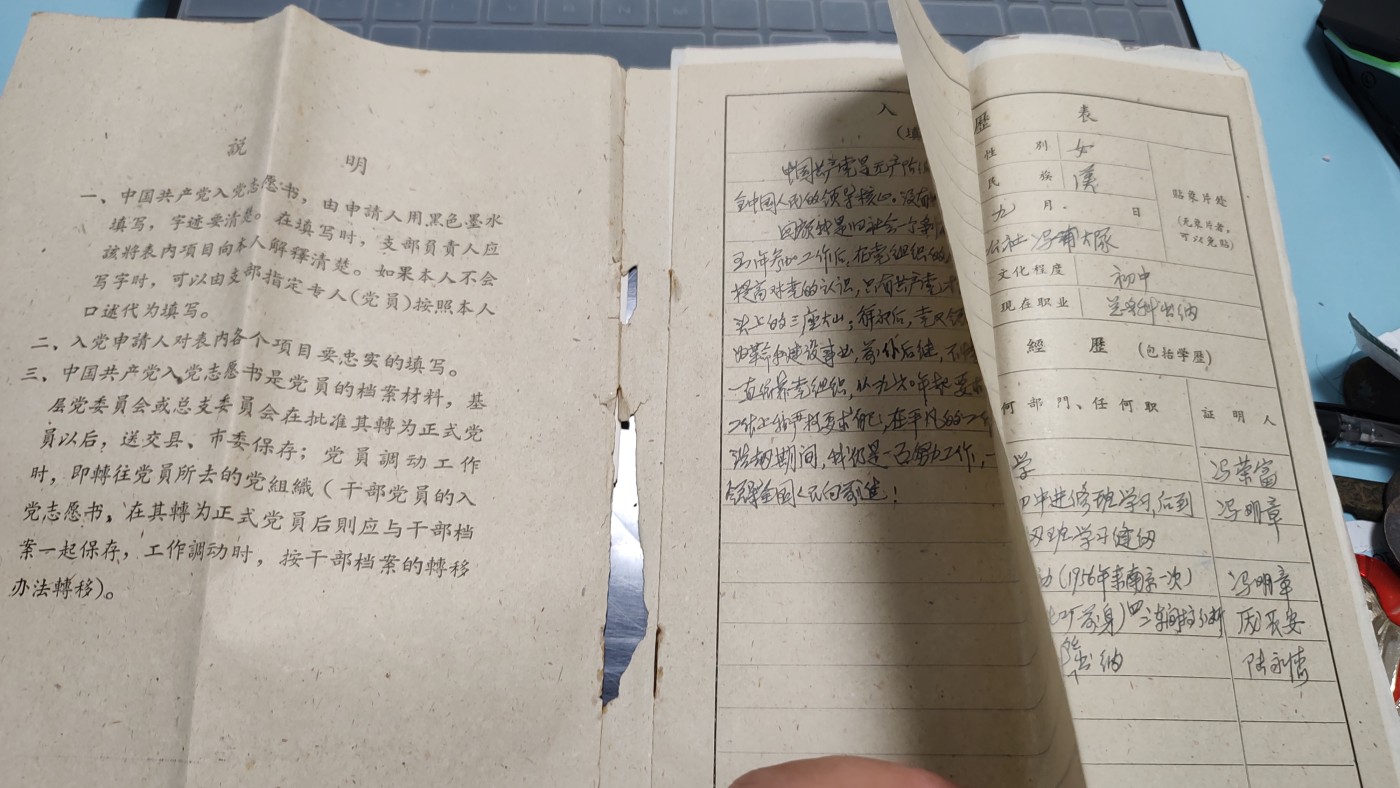 説明
一、中国共产党入党志愿书，由申請人用黑色墨水
填写，字迹要清楚。在填写时，支部負責人应
該将表内项目向本人解釋清楚。如果本人不会
写字时，可以由支部指定专人(党員)按照本人
口述代为填写。
二、入党申請人对表内各个项目要忠实的填写。
三、中国共产党入党志愿书是党員的档案材料，基
层党委員会或总支委員会在批准其轉为正式党
員以后，送交县、市委保存；党員調动工作
时，即轉往党員所去的党組織（干部党員的入
党志愿书，在其轉为正式党員后則应与干部档
案一起保存，工作調动时，按干部档案的轉移
办法轉移)。
入
中国共产党是无产阶
全中国人民的领导核心。没有
回顾我是旧社会一个
年参加工作后，在党组织的
提高对党的认识，只有共产党
头上的三座大山；解放后，党又领
的革命和建设事业，前仆后继，不
一直依靠党组织，从一九六〇年起要
工作上我严格要求自己，在平凡的工作
期间，我仍是一面努力工作，一
领导全国人民向前进！
歷表
性别 女
民族 漢
九月 日
公社 冯浦大队
文化程度 初中
现在职业 出纳
貼象片处
(无象片者，
可以免貼)
經歷 (包括学歷)
何部門、任何职 証明人
学 冯荣富
中进修班学习,后到 冯明章
班学习缝纫
(1956年来南京一次) 冯明章
前身) 车间
出纳 陆永倩